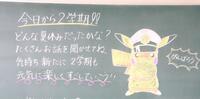 今日から2学期!!
どんな夏休みだったかな?
たくさんお話を聞かせてね。
気持ち新たに2学期も
元気に楽しくすごしていこう!
がんばろう